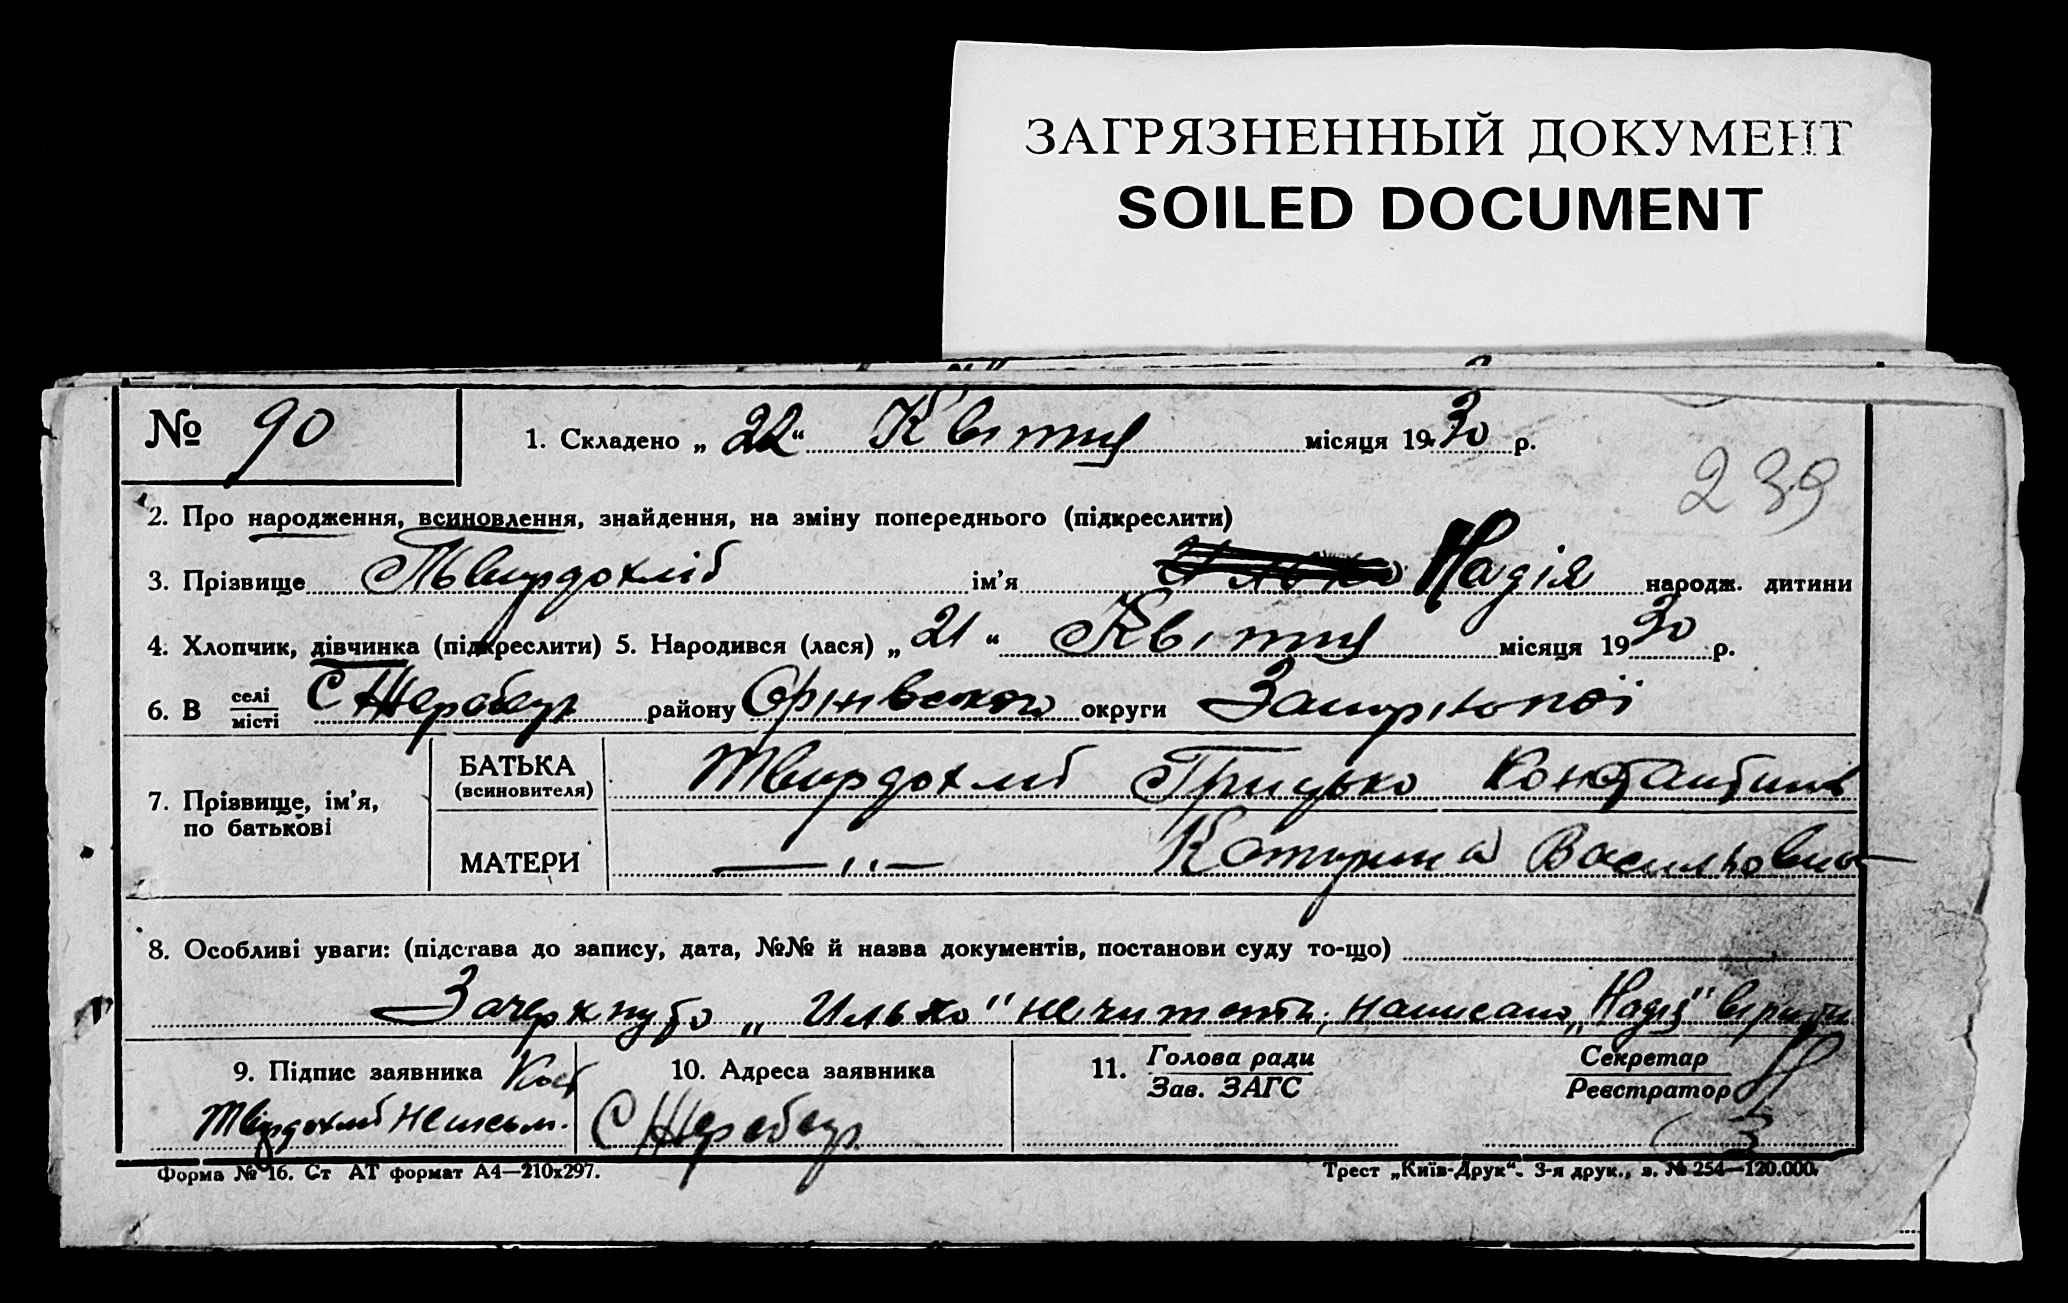 ЗАГРЯЗНЕННЫЙ ДОКУМЕНТ
SOILED DOCUMENT
№ 90
1. Складено „ 22 “ Квітня місяця 1930 р.
239
2. Про народження, всиновлення, знайдення, на зміну попереднього (підкреслити)
3. Прізвище Твирдохліб ім’я Илько Надія народж. дитини
4. Хлопчик, дівчинка (підкреслити) 5. Народився (лася) „ 21 “ Квітня місяця 1930 р.
6. В селі місті С Жеребець району Оріхівського округи
7. Прізвище, ім’я, по батькові
БАТЬКА (всиновителя) Твирдохліб Грицько
МАТЕРИ — „ — Катирина Васильовна
8. Особливі уваги: (підстава до запису, дата, №№ й назва документів, постанови суду то-що)
Зачеркнуто „Илько“ не читать, написано „Надія“ вірити
9. Підпис заявника
Твирдохліб неписьм.
10. Адреса заявника
С Жеребець
11. Голова ради
Зав. ЗАГС
Секретар
Реєстратор
Форма № 16. Ст АТ формат А4—210x297.
Трест „Київ-Друк“. 3-я друк., з. № 254—120.000.